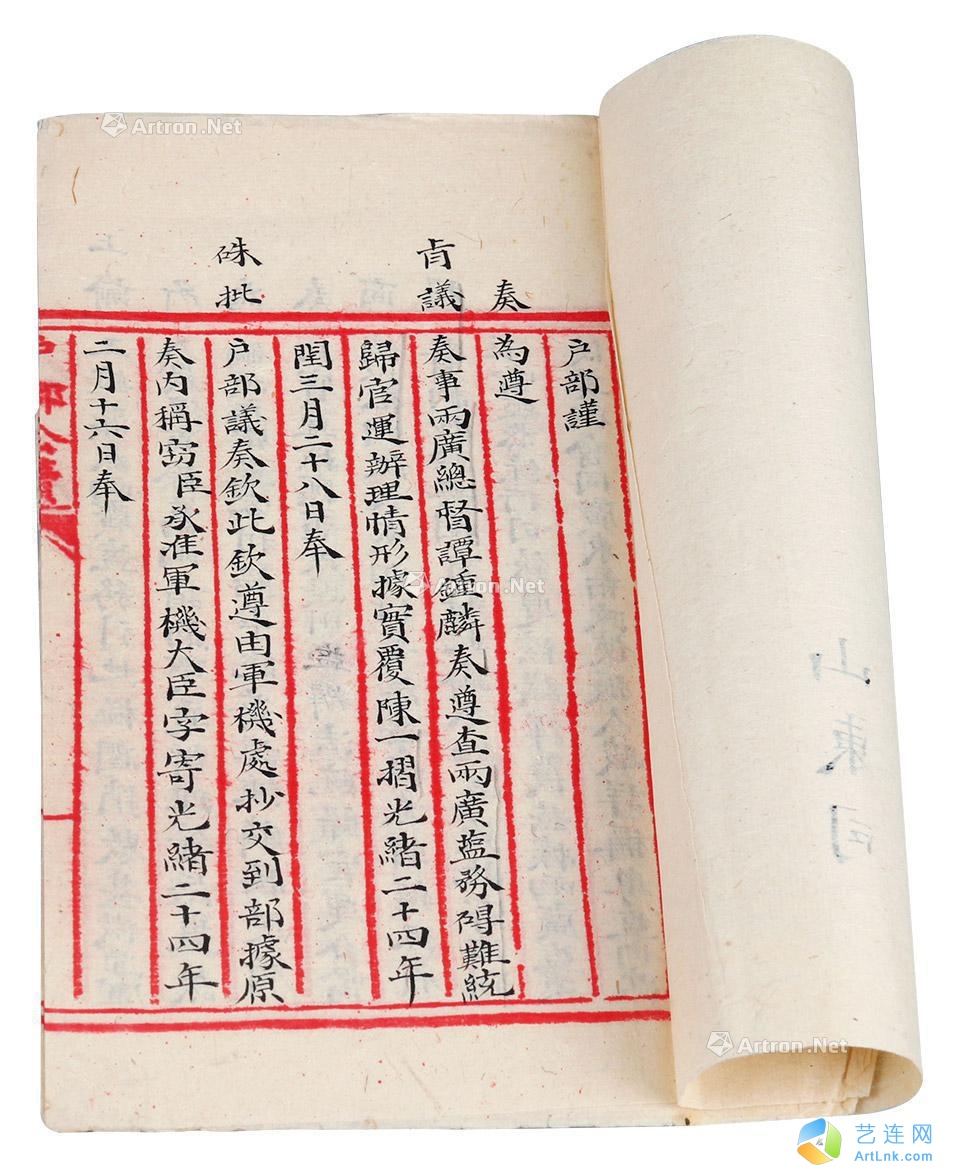 戶部謹
奏
為遵
旨議
奏事兩廣總督譚鍾麟奏遵查兩廣塩務碍難統
歸官運辦理情形據實覆陳一摺光緒二十四年
閏三月二十八日奉
硃批
戶部議奏欽此欽遵由軍機處抄交到部據原
奏內稱竊臣承准軍機大臣字寄光緒二十四年
二月十六日奉
戶部公牘
山東司
Artron.Net
Artron.Net
Artron.Net
艺连网
ArtLnk.com